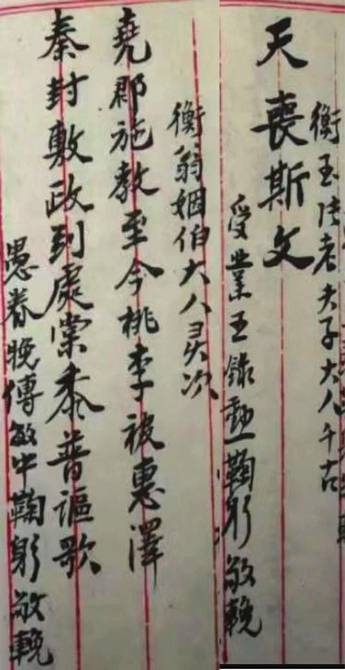 衡玉老夫子大人千古
天喪斯文
受業王錄鞠躬敬輓
衡翁姻伯大人灵次
堯郡施教至今桃李被惠澤
秦封敷政到處棠黍普謳歌
愚眷晚傅敏中鞠躬敬輓